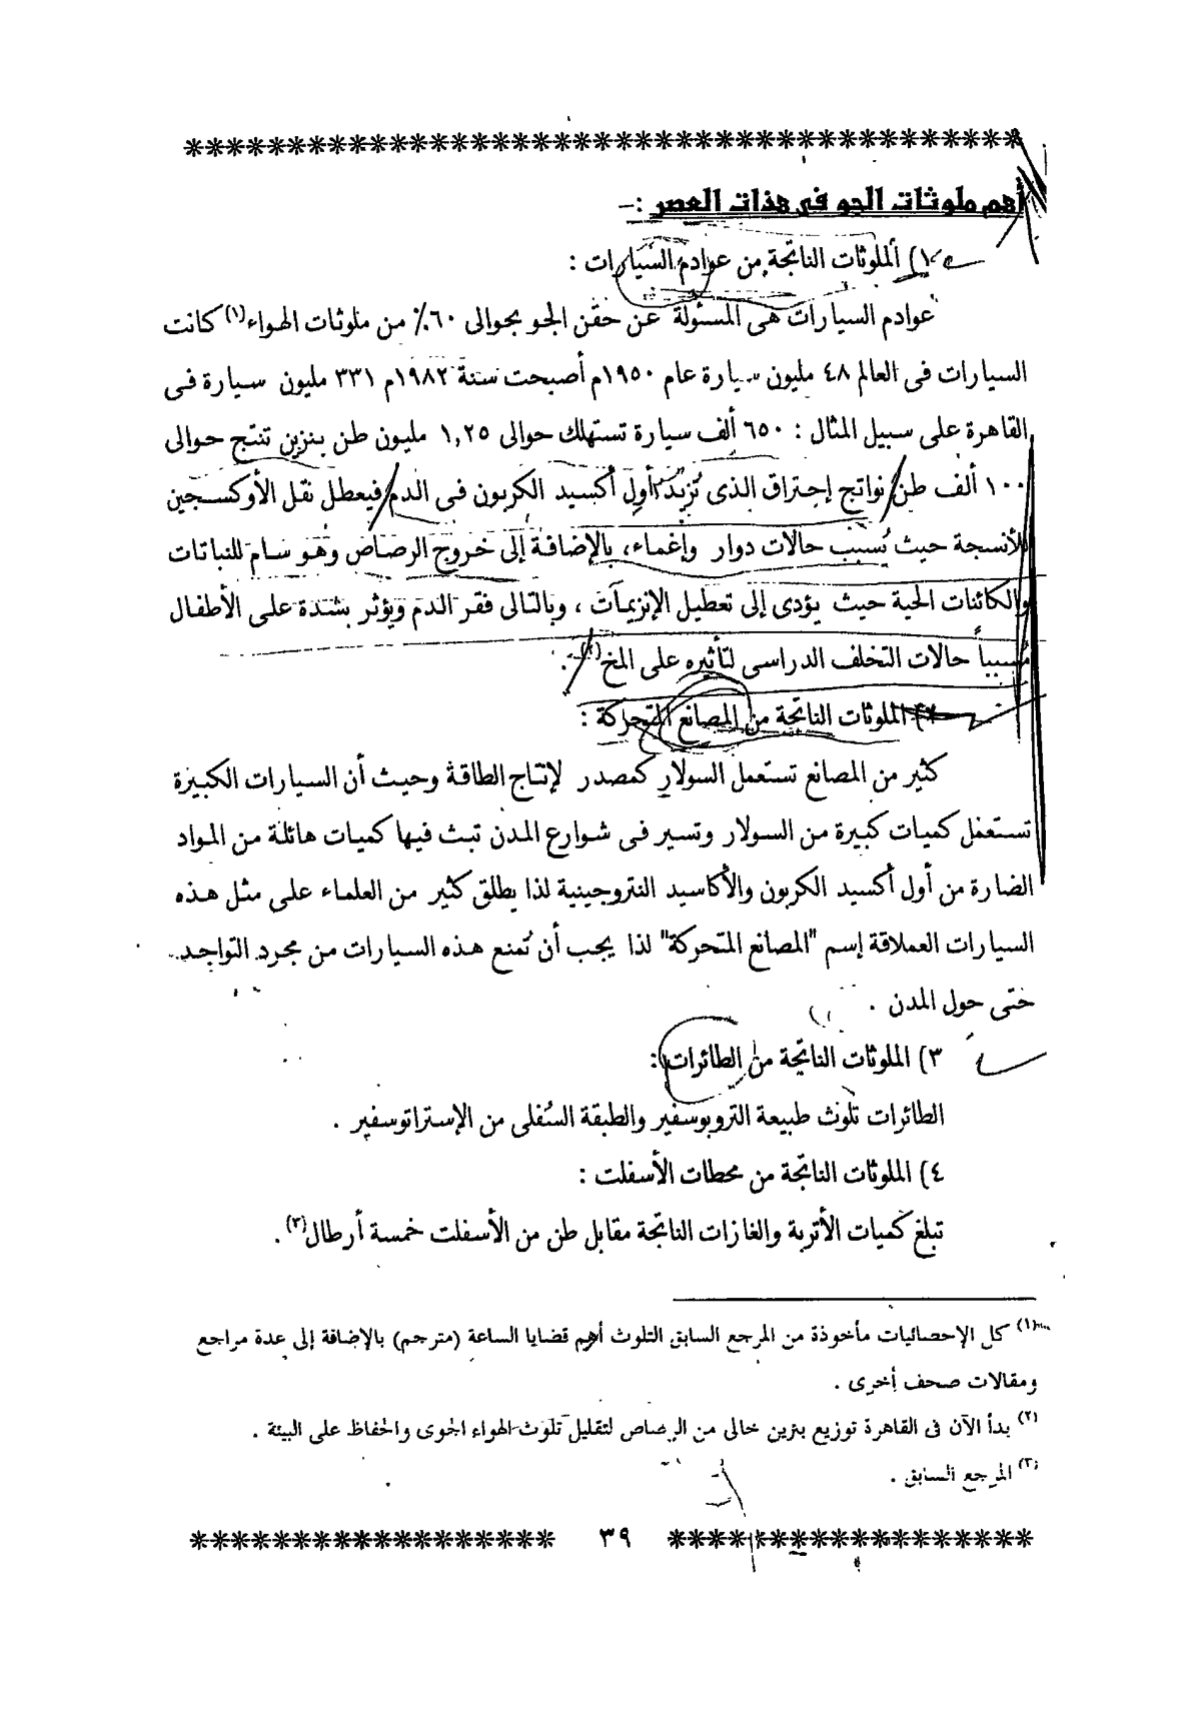 أهم ملوثات الجو فى هذات العصر :–
١) الملوثات الناتجة من عوادم السيارات :
عوادم السيارات هى المسئولة عن حقن الجو بجوالى ٦٠٪ من ملوثات الهواء(١) كانت
السيارات فى العالم ٤٨ مليون سيارة عام ١٩٥٠م أصبحت سنة ١٩٨٢م ٣٣١ مليون سيارة فى
القاهرة على سبيل المثال : ٦٥٠ ألف سيارة تستهلك حوالى ١,٢٥ مليون طن بنزين تنتج حوالى
١٠٠ ألف طن نواتج إحتراق الذى تزيد أول أكسيد الكربون فى الدم فيعطل نقل الأوكسجين
للأنسجة حيث يُسبب حالات دوار وإغماء، بالإضافة إلى خروج الرصاص وهو سام للنباتات
والكائنات الحية حيث يؤدى إلى تعطيل الإنزيمات ، وبالتالى فقر الدم ويؤثر بشدة على الأطفال
مُسبباً حالات التخلف الدراسى لتأثيره على المخ(٢) .
٢) الملوثات الناتجة من المصانع المتحركة :
كثير من المصانع تستعمل السولار كمصدر لإنتاج الطاقة وحيث أن السيارات الكبيرة
تستعمل كميات كبيرة من السولار وتسير فى شوارع المدن تبث فيها كميات هائلة من المواد
الضارة من أول أكسيد الكربون والأكاسيد النتروجينية لذا يطلق كثير من العلماء على مثل هذه
السيارات العملاقة إسم "المصانع المتحركة" لذا يجب أن تُمنع هذه السيارات من مجرد التواجد
حتى حول المدن .
٣) الملوثات الناتجة من الطائرات :
الطائرات تلوث طبيعة التروبوسفير والطبقة السُفلى من الإستراتوسفير .
٤) الملوثات الناتجة من محطات الأسفلت :
تبلغ كميات الأتربة والغازات الناتجة مقابل طن من الأسفلت خمسة أرطال(٣) .
(١) كل الإحصائيات مأخوذة من المرجع السابق التلوث أهم قضايا الساعة (مترجم) بالإضافة إلى عدة مراجع
ومقالات صحف أخرى .
(٢) بدأ الآن فى القاهرة توزيع بنزين خالى من الرصاص لتقليل تلوث الهواء الجوى والحفاظ على البيئة .
(٣) المرجع السابق .
٣٩